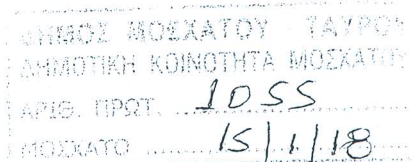 ΔΗΜΟΣ ΜΟΣΧΑΤΟΥ ΤΑΥΡΟΥ
ΔΗΜΟΤΙΚΗ ΚΟΙΝΟΤΗΤΑ ΜΟΣΧΑΤΟΥ
ΑΡΙΘ. ΠΡΩΤ. 1055
ΜΟΣΧΑΤΟ 15/1/18